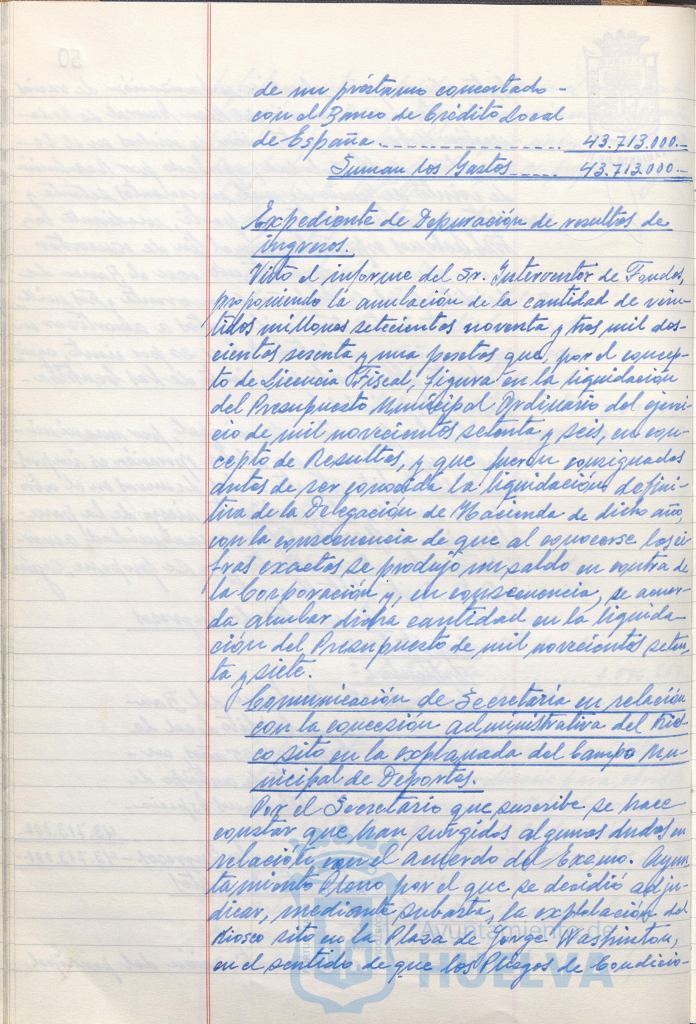 de un préstamo concertado -
con el Banco de Crédito Local
de España. . . . . . . . . . . . . . . 43.713.000.-
Suman los Gastos . . . . . 43.713.000.-
Expediente de Depuración de resultas de
ingresos.
Visto el informe del Sr. Interventor de Fondos,
proponiendo la anulación de la cantidad de vein-
tidos millones setecientos noventa y tres mil dos-
cientos sesenta y una pesetas que, por el concep-
to de Licencia Fiscal, figura en la liquidación
del Presupuesto Municipal Ordinario del ejerci-
cio de mil novecientos setenta y seis, en con-
cepto de Resultas, y que fueron consignadas
antes de ser conocida la liquidación defini-
tiva de la Delegación de Hacienda de dicho año,
con la consecuencia de que al conocerse las ci-
fras exactas se produjo un saldo en contra de
la Corporación y, en consecuencia, se acuer-
da anular dicha cantidad en la liquida-
ción del Presupuesto de mil novecientos seten-
ta y siete.
Comunicación de Secretaría en relación
con la concesión administrativa del Kios-
co sito en la explanada del Campo Mu-
nicipal de Deportes.
Por el Secretario que suscribe se hace
constar que han surgidos algunas dudas en
relación con el acuerdo del Excmo. Ayun-
tamiento Pleno por el que se decidió adju-
dicar, mediante subasta, la explotación del
Kiosco sito en la Plaza de Jorge Washington,
en el sentido de que los Pliegos de Condicio-
Ayuntamiento de
HUELVA